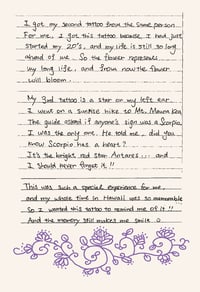 I got my second tattoo from the same person.
For me, I got this tattoo because I had just
started my 20's, and my life is still so long
ahead of me. So the flower represents
my long life, and from now the flower
will bloom.
My 3rd tattoo is a star on my left ear.
I went on a sunrise hike to Mt. Mauna Kea,
The guide asked if anyone's sign was a Scorpio,
I was the only one. He told me, did you
know Scorpio has a heart?
It's the bright red star Antares ... and
I should never forget it!!
This was such a special experience for me
and my whole time in Hawaii was so memorable
So I wanted this tattoo to remind me of it!!
And the memory still makes me smile :)